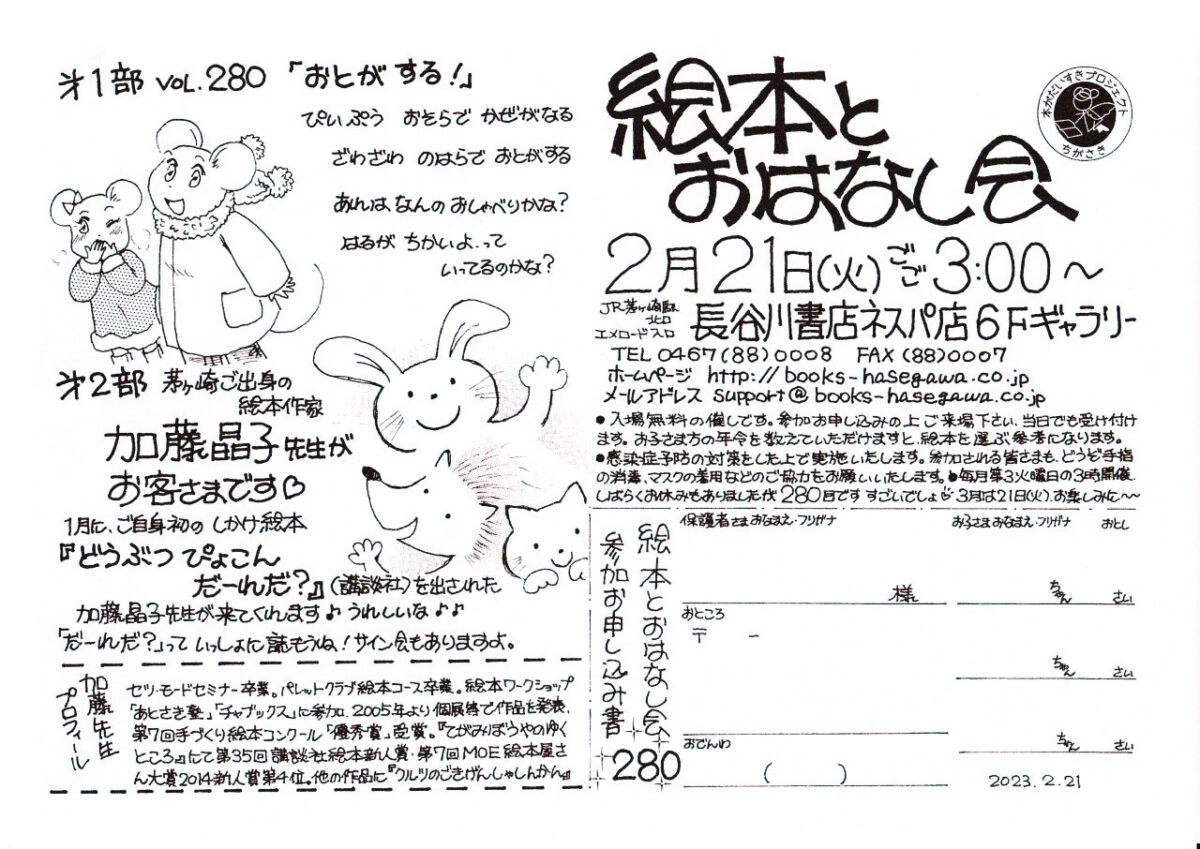 才1部 VOL.280 「おとがする!」
ぴいぷう おそらで かぜがなる
ざわざわ のはらで おとがする
あれは なんの おしゃべりかな?
はるが ちかいよ、って
いってるのかな?
才2部 茅ヶ崎ご出身の
絵本作家
加藤晶子先生が
お客さまです♡
1月に、ご自身初の しかけ絵本
『どうぶつ ぴょこん
だーれだ?』(講談社)を出された
加藤晶子先生が来てくれます♪うれしいな♪♪
「だーれだ?」って いっしょに読もうね!サイン会もありますよ。
加藤先生
プロフィール
セツ・モードセミナー卒業。パレットクラブ絵本コース卒業。絵本ワークショップ
「あとさき塾」「チャブックス」に参加。2005年より個展等で作品を発表。
第7回手づくり絵本コンクール「優秀賞」受賞。『てがみぼうやのゆく
ところ』にて第35回講談社絵本新人賞・第7回MOE絵本屋さ
ん大賞2014新人賞第4位。他の作品に『クルツのごきげんしゃしんかん』
絵本と
おはなし会
本がだいすきプロジェクト
ちがさき
2月21日(火)ごご3:00~
JR茅ヶ崎駅
北口
エメロード入口
長谷川書店ネスパ店6Fギャラリー
TEL 0467(88)0008 FAX(88)0007
ホームページ http://books-hasegawa.co.jp
メールアドレス support@books-hasegawa.co.jp
●入場無料の催しです。参加お申し込みの上ご来場下さい、当日でも受け付け
ます。お子さま方の年令を教えていただけますと、絵本を選ぶ参考になります。
●感染症予防の対策をした上で実施いたします。参加される皆さまも、どうぞ手指
の消毒、マスクの着用などのご協力をお願いいたします。●毎月第3火曜日の3時開催、
しばらくお休みもありましたが280回です すごいでしょ 3月は21日(火)、お楽しみに~~
絵本とおはなし会
参加お申し込み書
280
保護者さまおなまえ・フリガナ
様
おところ
〒 -
おでんわ
( )
お子さまおなまえ・フリガナ おとし
ちゃん さい
ちゃん さい
ちゃん さい
2023.2.21